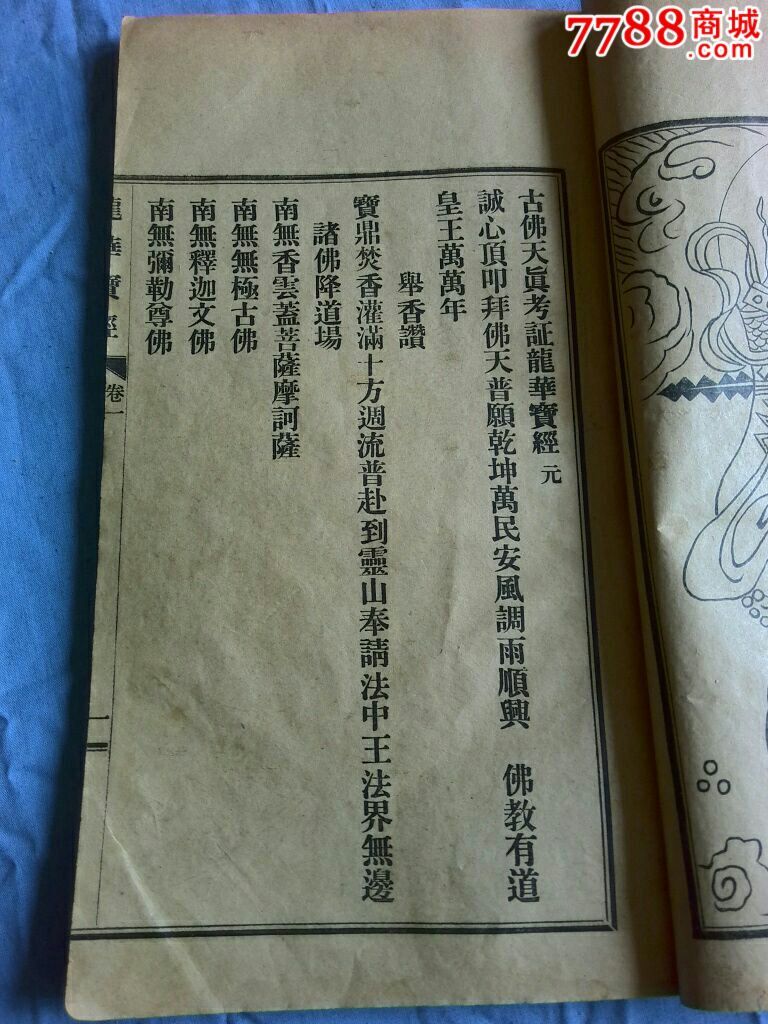 7788商城
.com
古佛天眞考証龍華寶經 元
誠心頂叩拜佛天普願乾坤萬民安風調雨順興 佛教有道
皇王萬萬年
舉香讚
寶鼎焚香灌滿十方週流普赴到靈山奉請法中王法界無邊
諸佛降道場
南無香雲蓋菩薩摩訶薩
南無無極古佛
南無釋迦文佛
南無彌勒尊佛
龍華寶經 卷一 一